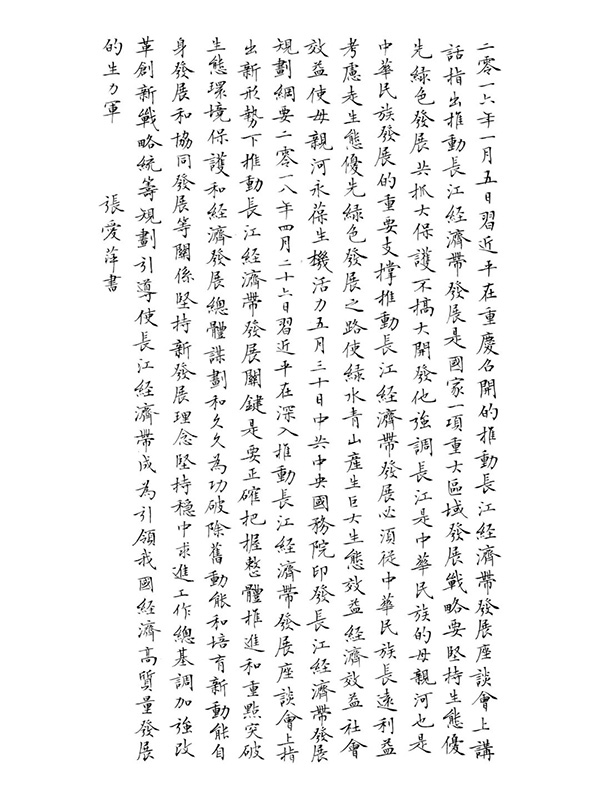 二零一六年一月五日習近平在重慶召開的推動長江經濟帶發展座談會上講
話指出推動長江經濟帶發展是國家一項重大區域發展戰略要堅持生態優
先綠色發展共抓大保護不搞大開發他強調長江是中華民族的母親河也是
中華民族發展的重要支撐推動長江經濟帶發展必須從中華民族長遠利益
考慮走生態優先綠色發展之路使綠水青山産生巨大生態效益經濟效益社會
效益使母親河永葆生機活力五月三十日中共中央國務院印發長江經濟帶發展
規劃綱要二零一八年四月二十六日習近平在深入推動長江經濟帶發展座談會上指
出新形勢下推動長江經濟帶發展關鍵是要正確把握整體推進和重點突破
生態環境保護和經濟發展總體謀劃和久久為功破除舊動能和培育新動能自
身發展和協同發展等關係堅持新發展理念堅持穩中求進工作總基調加強改
革創新戰略統籌規劃引導使長江經濟帶成為引領我國經濟高質量發展
的生力軍 張愛萍書